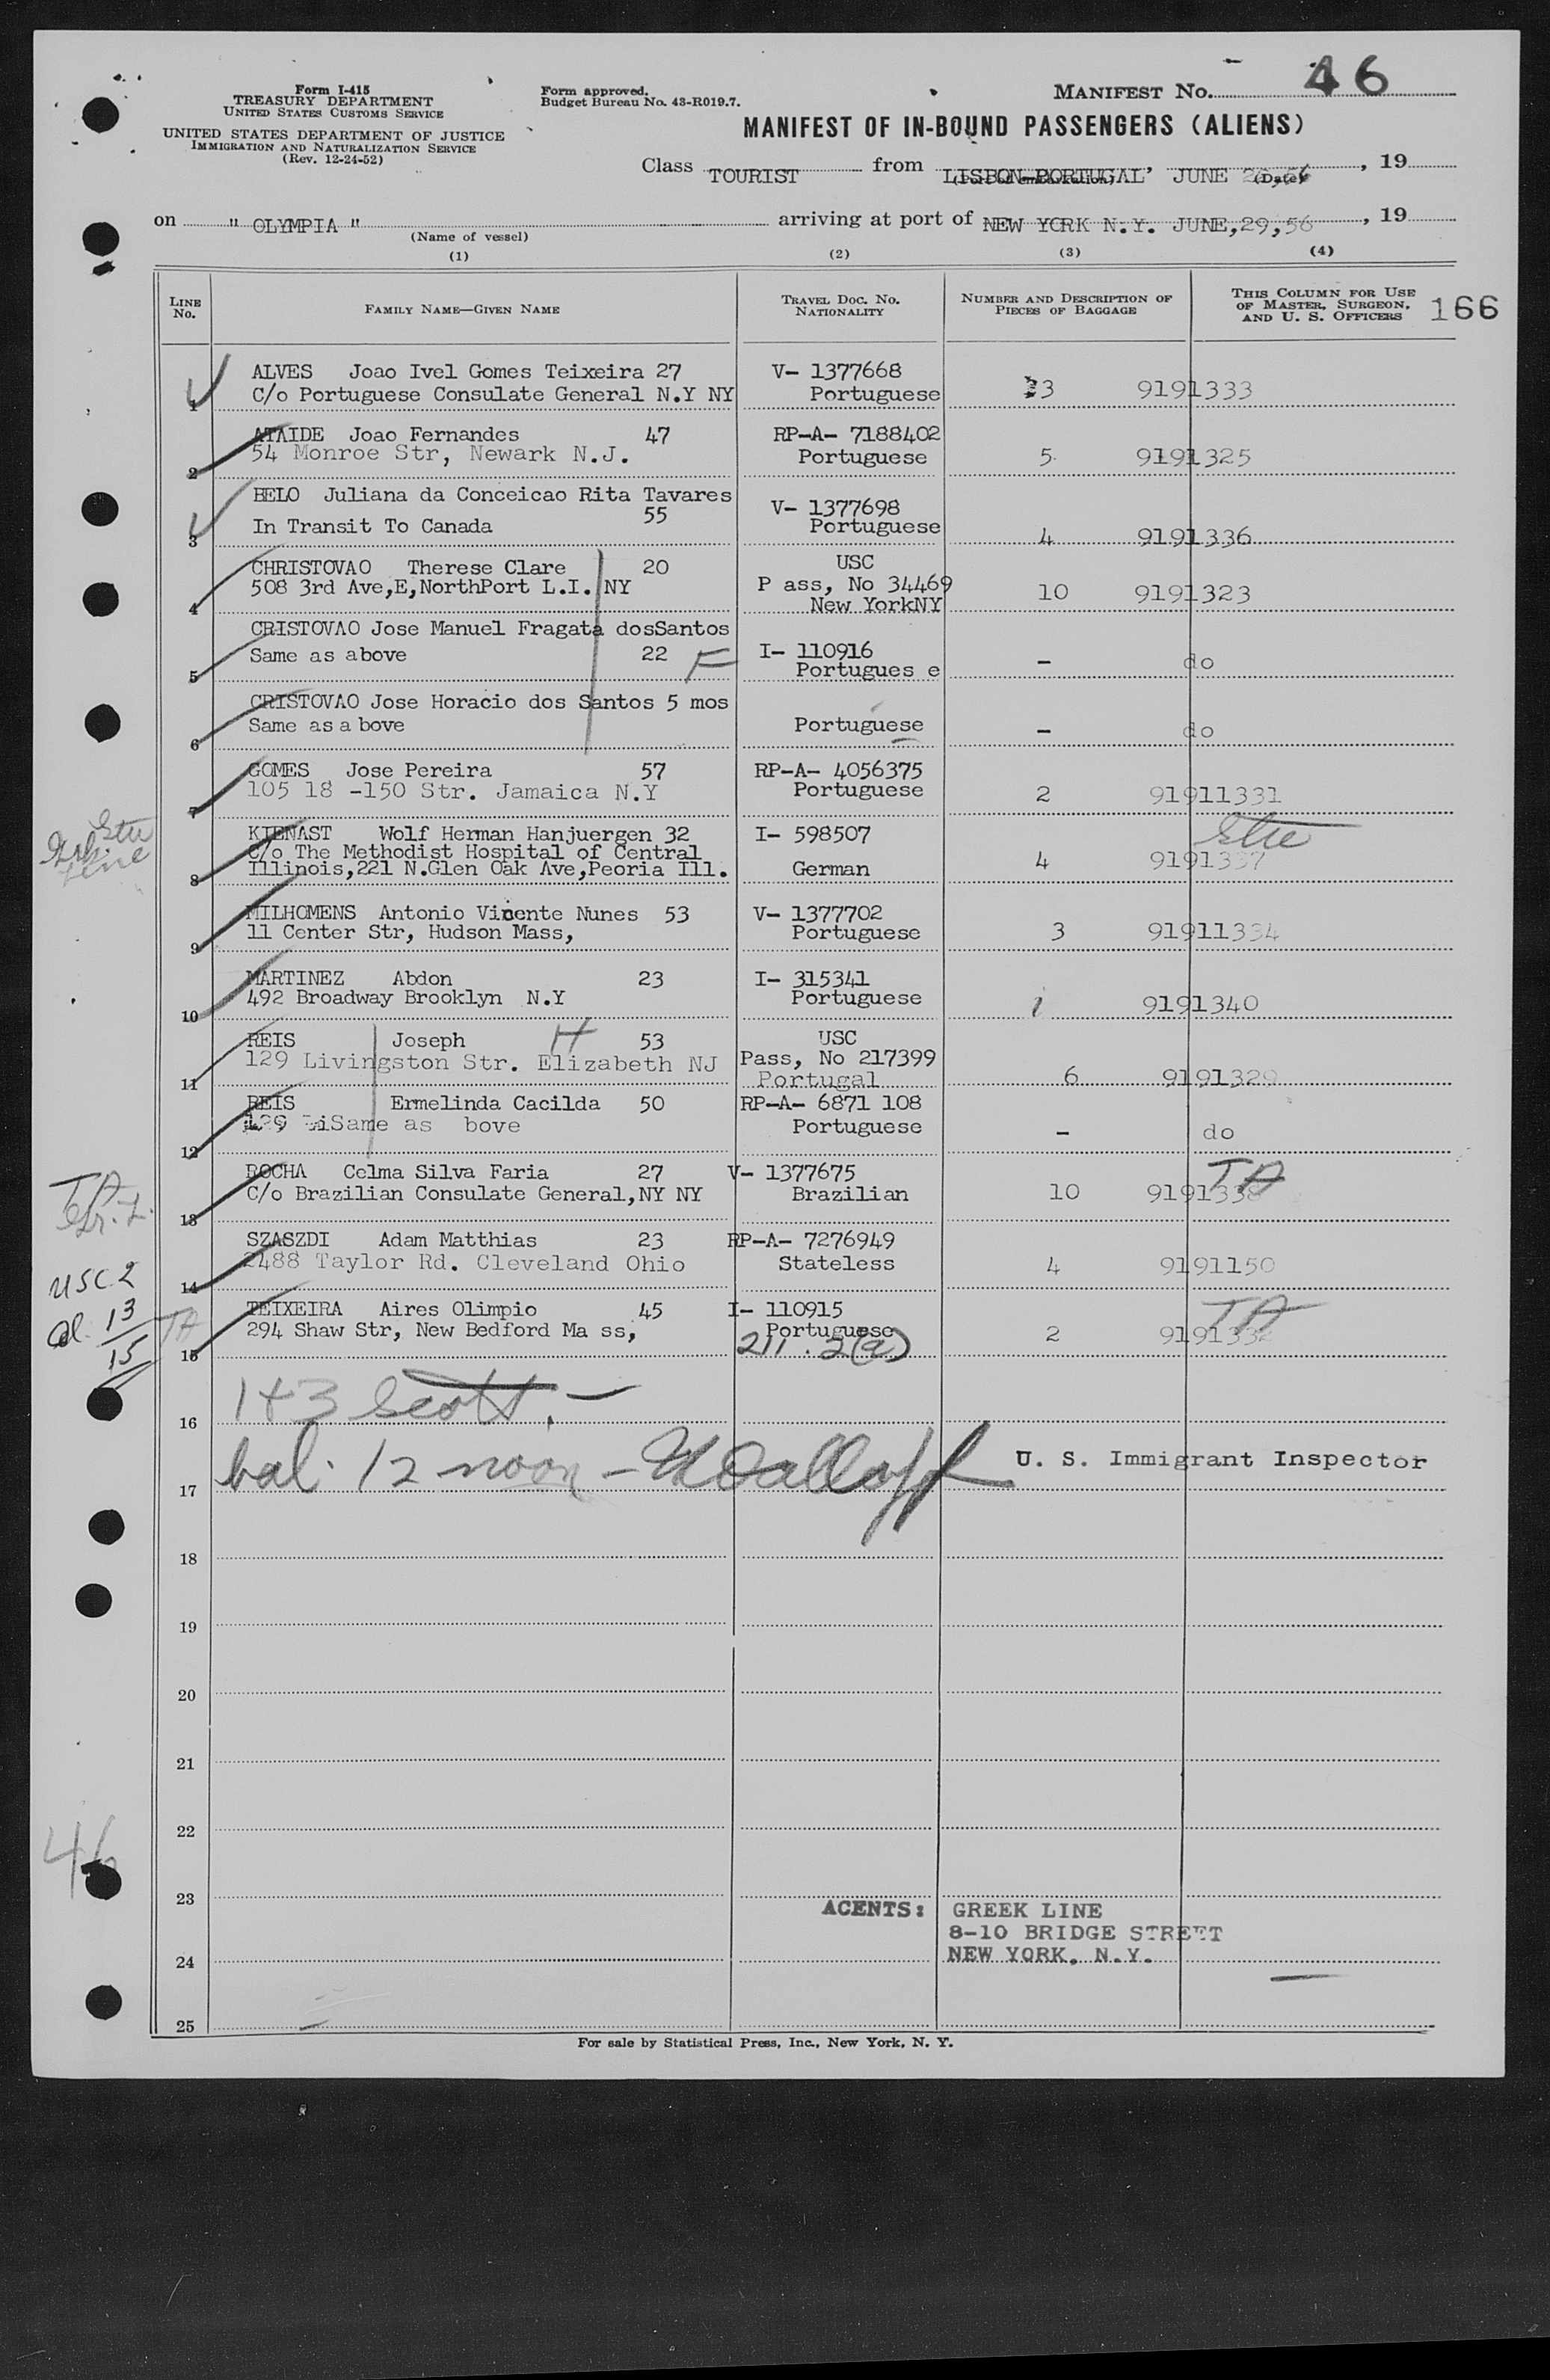 Form I-415
TREASURY DEPARTMENT
UNITED STATES CUSTOMS SERVICE
UNITED STATES DEPARTMENT OF JUSTICE
IMMIGRATION AND NATURALIZATION SERVICE
(Rev. 12-24-52)
Form approved.
Budget Bureau No. 43-R019.7.
MANIFEST No. 46
MANIFEST OF IN-BOUND PASSENGERS (ALIENS)
Class TOURIST from LISBON-PORTUGAL, JUNE , 19
(Port of embarkation) (Date)
on " OLYMPIA " arriving at port of NEW YORK N.Y. JUNE,29,56 , 19
(Name of vessel)
(1) (2) (3) (4)
LINE No. FAMILY NAME—GIVEN NAME TRAVEL DOC. No. NATIONALITY NUMBER AND DESCRIPTION OF PIECES OF BAGGAGE THIS COLUMN FOR USE OF MASTER, SURGEON, AND U. S. OFFICERS 166
ALVES Joao Ivel Gomes Teixeira 27 V- 1377668
1 C/o Portuguese Consulate General N.Y NY Portuguese 3 9191333
ATAIDE Joao Fernandes 47 RP-A- 7188402
2 54 Monroe Str, Newark N.J. Portuguese 5 9191325
BELO Juliana da Conceicao Rita Tavares V- 1377698
3 In Transit To Canada 55 Portuguese 4 9191336
CHRISTOVAO Therese Clare 20 USC
508 3rd Ave,E,NorthPort L.I. NY P ass, No 34469 10 9191323
4 New YorkNY
CRISTOVAO Jose Manuel Fragata dosSantos
5 Same as above 22 F I- 110916 Portugues e - do
CRISTOVAO Jose Horacio dos Santos 5 mos
6 Same as a bove Portuguese - do
GOMES Jose Pereira 57 RP-A- 4056375
7 105 18 -150 Str. Jamaica N.Y Portuguese 2 91911331
KIENAST Wolf Herman Hanjuergen 32 I- 598507
C/o The Methodist Hospital of Central
8 Illinois,221 N.Glen Oak Ave,Peoria Ill. German 4 9191337
MILHOMENS Antonio Vicente Nunes 53 V- 1377702
9 11 Center Str, Hudson Mass, Portuguese 3 91911334
MARTINEZ Abdon 23 I- 315341
10 492 Broadway Brooklyn N.Y Portuguese 1 9191340
REIS Joseph H 53 USC
129 Livingston Str. Elizabeth NJ Pass, No 217399
11 Portugal 6 9191329
REIS Ermelinda Cacilda 50 RP-A- 6871 108
12 Same as bove Portuguese - do
ROCHA Celma Silva Faria 27 V- 1377675 TA
13 C/o Brazilian Consulate General,NY NY Brazilian 10 9191338
SZASZDI Adam Matthias 23 RP-A- 7276949
14 2488 Taylor Rd. Cleveland Ohio Stateless 4 9191150
TEIXEIRA Aires Olimpio 45 I- 110915 TA
15 294 Shaw Str, New Bedford Ma ss, Portuguese 2 9191332
211.2(a)
TA
USC 2
al. 13
15
TA
1+3 Scott.-
16
bal. 12 noon -
U. S. Immigrant Inspector
17
18
19
20
21
22
46
23
AGENTS: GREEK LINE
8-10 BRIDGE STREET
24 NEW YORK, N.Y.
25
For sale by Statistical Press, Inc., New York, N. Y.